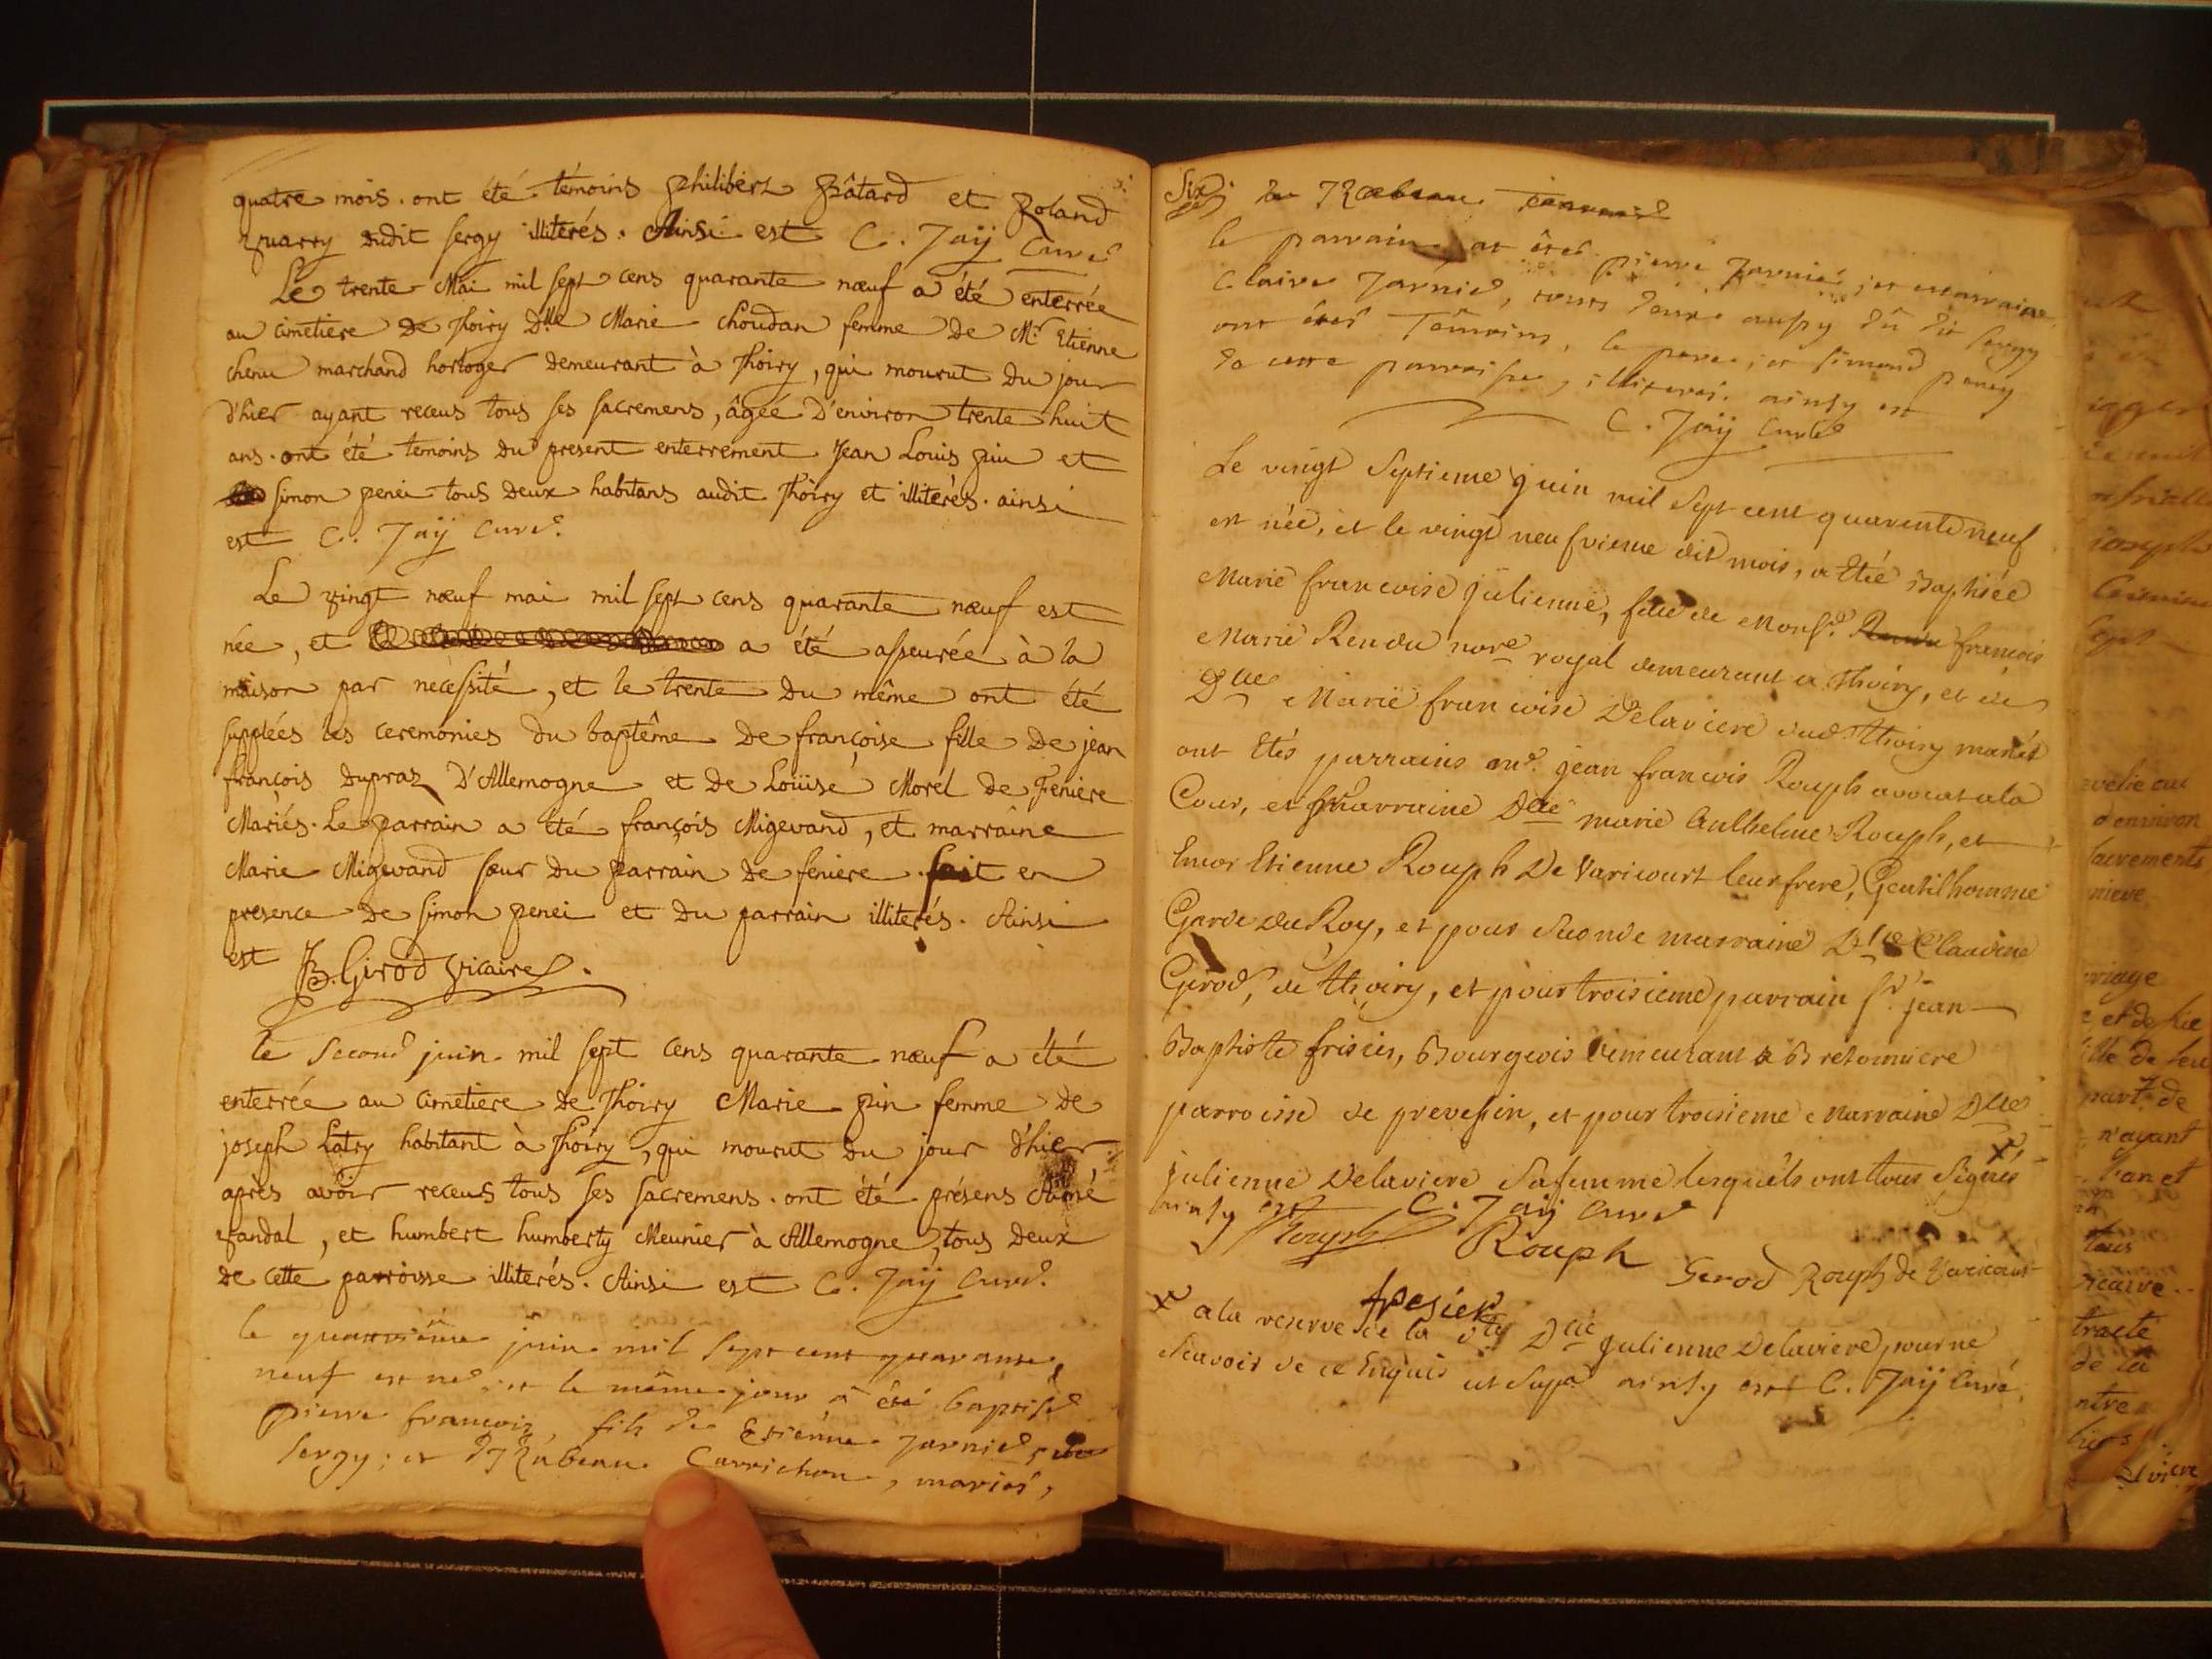 quatre mois. ont été témoins philibert pâtard et Roland
quarry dudit sergy illiterés. Ainsi est C. Jaÿ Curé
Le trente Mai mil sept cens quarante nœuf a été enterrée
au cimetiere de Thoiry Dlle Marie choudan femme de Mr Etienne
chenu marchand horloger demeurant à Thoiry, qui mourut du jour
d'hier ayant receus tous ses sacremens, âgée d'environ trente huit
ans. ont été temoins du present enterrement Jean Louis pin et
simon penei tous deux habitans audit Thoiry et illiterés. ainsi
est C. Jaÿ Curé.
Le vingt nœuf mai mil sept cens quarante nœuf est
née, et a été asseurée à la
maison par necessité, et le trente du même ont été
supplées les ceremonies du baptême de françoise fille de jean
françois dupraz D'Allemogne et de Loüise Morel de Feniere
Mariés. Le parrain a été françois Migevand, et marraine
Marie Migevand sœur du parrain de feniere. fait en
presence de simon penei et du parrain illiterés. Ainsi
est JB. Girod vicaire.
le second juin mil sept cens quarante nœuf a été
enterrée au cimetiere de Thoiry Marie pin femme de
joseph Latry habitant à Thoiry, qui mourut du jour d'hier
après avoir receus tous ses sacremens. ont été présens Aimé
vandal, et humbert humberty Meunier à Allemogne, tous deux
de cette parroisse illiterés. Ainsi est C. Jaÿ Curé.
le quatrième juin mil sept cent quarante
neuf est né, et le même jour a été baptisé
pierre françois, fils de Estiénne Jarnié, de
sergy; et d' Carrichon, mariés,
Six
le parrain at étés pierre Jarnié; et marraine
Claire Jarnié, tous deux aussy du dit sergy
ont étés Témoins, le pere; et simond peney
de cette parroisse, illiterés. ainsy est
C. Jaÿ Curé
Le vingt Septieme juin mil Sept cent quarente neuf
est née, et le vingt neufvieme dit mois, a Etée Baptisée
Marie francoise julienne, fille de Monsr. francois
Marie Rendu nore royal demeurant a Thoiry, et de
Dlle Marie francoise Delaviere dud. Thoiry mariés
ont Etés parrains mr. jean francois Rouph avocat ala
Cour, et marraine Dlle marie Anthelme Rouph, et
Encor Etienne Rouph De Varicourt leur frere, Gentilhomme
Garde du Roy, et pour seconde marraine Dlle Claudine
Girod, de Thoiry, et pour troisieme parrain sr. jean
Baptiste frisier, Bourgeois demeurant a Bretonniere
parroisse de prevessin, et pour troisieme Marraine Dlle
julienne Delaviere Sa femme lesquels ont tous Signés
ainsy est C. Jaÿ Curé
Rouph Rouph Gerod Rouph de Varicourt
fresier
x ala reserve de la dte Dlle julienne Delaviere pour ne
Scavoir de ce Enquis ut Supa ainsy est C. Jaÿ Curé.